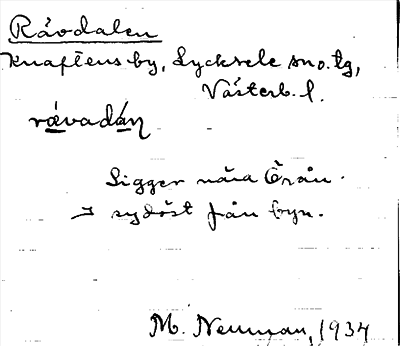 Rävdalen
Knaftens by, Lycksele sn o. tg,
Västerb. l.
rævadáɳ
Ligger nära Örån.
I sydöst från byn.
M. Neuman, 1934